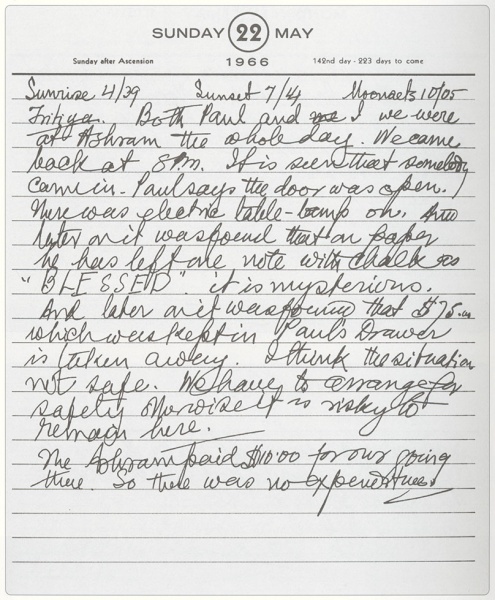 SUNDAY 22 MAY
Sunday after Ascension 1966 142nd day - 223 days to come
Sunrise 4/39 Sunset 7/4 Moonsets 10/05
Tritiya. Both Paul and me I we were
at Ashram the whole day. We came
back at 8 P.M. It is seen that somebody
came in. Paul says the door was open.
There was electric table-lamp on. And
later on it was found that on paper
he has left one note with chalk as
"BLESSED". it is mysterious.
And later on it was found that $75.00
which was kept in Paul's Drawer
is taken away. I think the situation
not safe. We have to arrange for
safety otherwise it is risky to
remain here.
The Ashram paid $10.00 for our going
there. So there was no expenditures